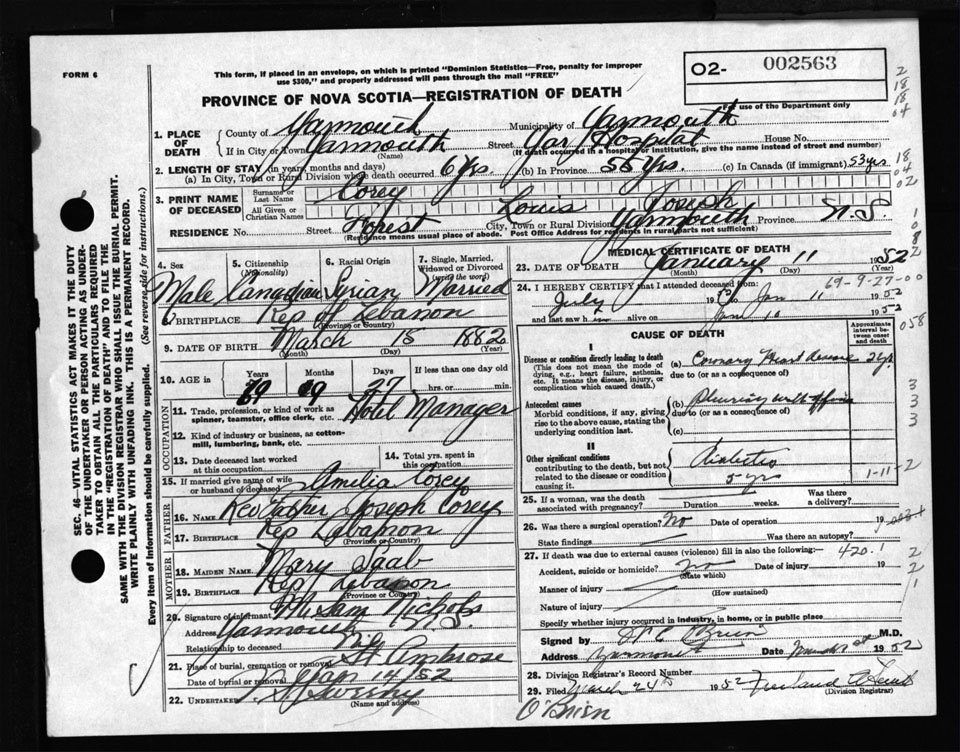 FORM 6
This form, if placed in an envelope, on which is printed "Dominion Statistics—Free, penalty for improper
use $300," and properly addressed will pass through the mail "FREE"
O2- 002563
For use of the Department only
PROVINCE OF NOVA SCOTIA—REGISTRATION OF DEATH
1. PLACE OF DEATH
County of Yarmouth Municipality of Yarmouth
If in City or Town Yarmouth (Name) Street Yar. Hospital House No.
(If death occurred in a hospital or institution, give the name instead of street and number)
2. LENGTH OF STAY (in years, months and days)
(a) In City, Town or Rural Division where death occurred 6 yrs. (b) In Province 55 yrs. (c) In Canada (if immigrant) 53 yrs
3. PRINT NAME OF DECEASED
Surname or Last Name Corey
All Given or Christian Names Louis Joseph
RESIDENCE No. Street Forest City, Town or Rural Division Yarmouth Province N.S.
(Residence means usual place of abode. Post Office Address for residents in rural parts not sufficient)
4. Sex Male
5. Citizenship (Nationality) Canadian
6. Racial Origin Syrian
7. Single, Married, Widowed or Divorced (write the word) Married
8. BIRTHPLACE Rep of Lebanon
(Province or Country)
9. DATE OF BIRTH March 15 1882
(Month) (Day) (Year)
10. AGE in Years 69 Months 9 Days 27 If less than one day
hrs. or min.
OCCUPATION
11. Trade, profession, or kind of work as spinner, teamster, office clerk, etc. Hotel Manager
12. Kind of industry or business, as cotton-mill, lumbering, bank, etc.
13. Date deceased last worked at this occupation
14. Total yrs. spent in this occupation
15. If married give name of wife or husband of deceased Amelia Corey
FATHER
16. NAME Rev Father Joseph Corey
17. BIRTHPLACE Rep Lebanon
(Province or Country)
MOTHER
18. MAIDEN NAME Mary Saab
19. BIRTHPLACE Rep Lebanon
(Province or Country)
20. Signature of informant Sam Nichols
Address Yarmouth N.S.
Relationship to deceased
21. Place of burial, cremation or removal St Ambrose
Date of burial or removal Jan 14/52
22. UNDERTAKER Sweeny
(Name and address)
MEDICAL CERTIFICATE OF DEATH
23. DATE OF DEATH January 11 1952
(Month) (Day) (Year)
69-9-27-00
24. I HEREBY CERTIFY that I attended deceased from
July to Jan 11 1952
and last saw h im alive on Jan 10 1952
CAUSE OF DEATH
Approximate interval between onset and death
I
Disease or condition directly leading to death
(This does not mean the mode of dying, e.g., heart failure, asthenia, etc. It means the disease, injury, or complication which caused death.)
(a) Coronary Heart Disease 2 yr
due to (or as a consequence of)
Antecedent causes
Morbid conditions, if any, giving rise to the above cause, stating the underlying condition last.
(b) Pleurisy with
due to (or as a consequence of)
(c)
II
Other significant conditions
contributing to the death, but not related to the disease or condition causing it.
Diabetes
5 yrs
1-11-2
25. If a woman, was the death associated with pregnancy? Duration weeks. Was there a delivery?
26. Was there surgical operation? No Date of operation 19
State findings Was there an autopsy?
27. If death was due to external causes (violence) fill in also the following:— 420.1
Accident, suicide or homicide? No Date of injury 19
(State which)
Manner of injury
(How sustained)
Nature of injury
Specify whether injury occurred in industry, in home, or in public place
Signed by O'Brien M.D.
Address Yarmouth Date 1952
28. Division Registrar's Record Number
29. Filed March 24th 1952
(Division Registrar)
O'Brien
SEC. 46—VITAL STATISTICS ACT MAKES IT THE DUTY
OF THE UNDERTAKER OR PERSON ACTING AS UNDER-
TAKER TO OBTAIN ALL THE PARTICULARS REQUIRED
IN THE "REGISTRATION OF DEATH" AND TO FILE THE
SAME WITH THE DIVISION REGISTRAR WHO SHALL ISSUE THE BURIAL PERMIT.
WRITE PLAINLY WITH UNFADING INK. THIS IS A PERMANENT RECORD.
Every item of information should be carefully supplied. (See reverse side for instructions.)
2
18
18
04
18
04
02
1
0
8
2
058
3
3
3
2
2
1